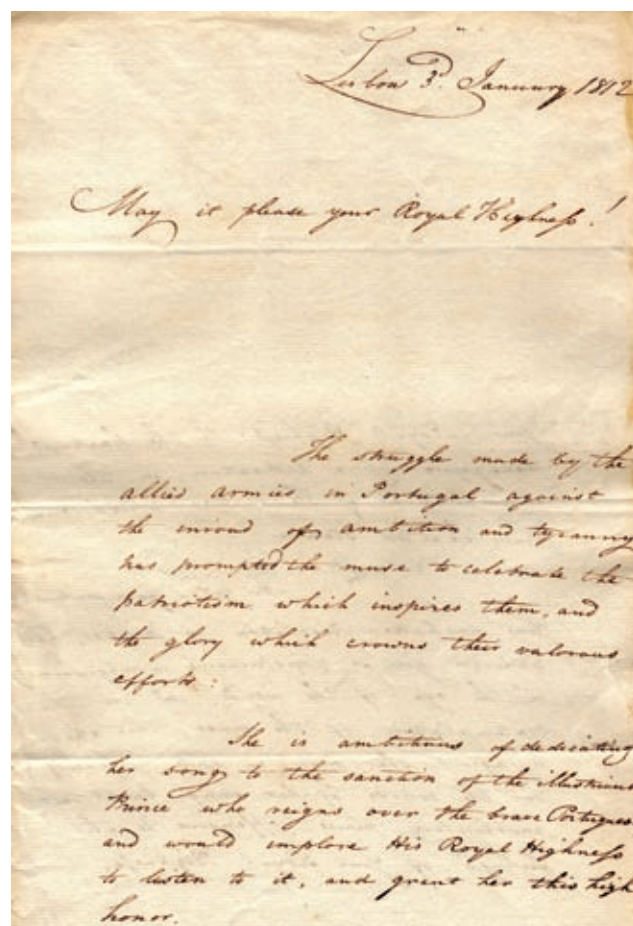 Lisbon 3d. January 1812
May it please your Royal Highness!
The struggle made by the
allied armies in Portugal against
the inroad of ambition and tyranny
has prompted the muse to celebrate the
patriotism which inspires them, and
the glory which crowns their valorous
efforts:
She is ambitious of dedicating
her song to the sanction of the illustrious
Prince who reigns over the brave Portuguese
and would implore His Royal Highness
to listen to it, and grant her this high
honor.